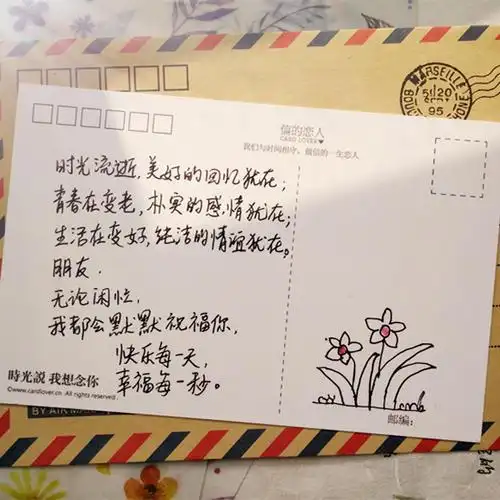 信的恋人
CARD LOVER
我们与时间相守，做信的一生恋人
时光流逝,美好的回忆犹在;
青春在变老,朴实的感情犹在;
生活在变好,纯洁的情谊犹在。
朋友.
无论闲忙,
我都会默默祝福你,
快乐每一天,
幸福每一秒。
時光説 我想念你
©www.cardlover.cn All rights reserved
邮编:
MARSEILLE
95
BY AIR MA